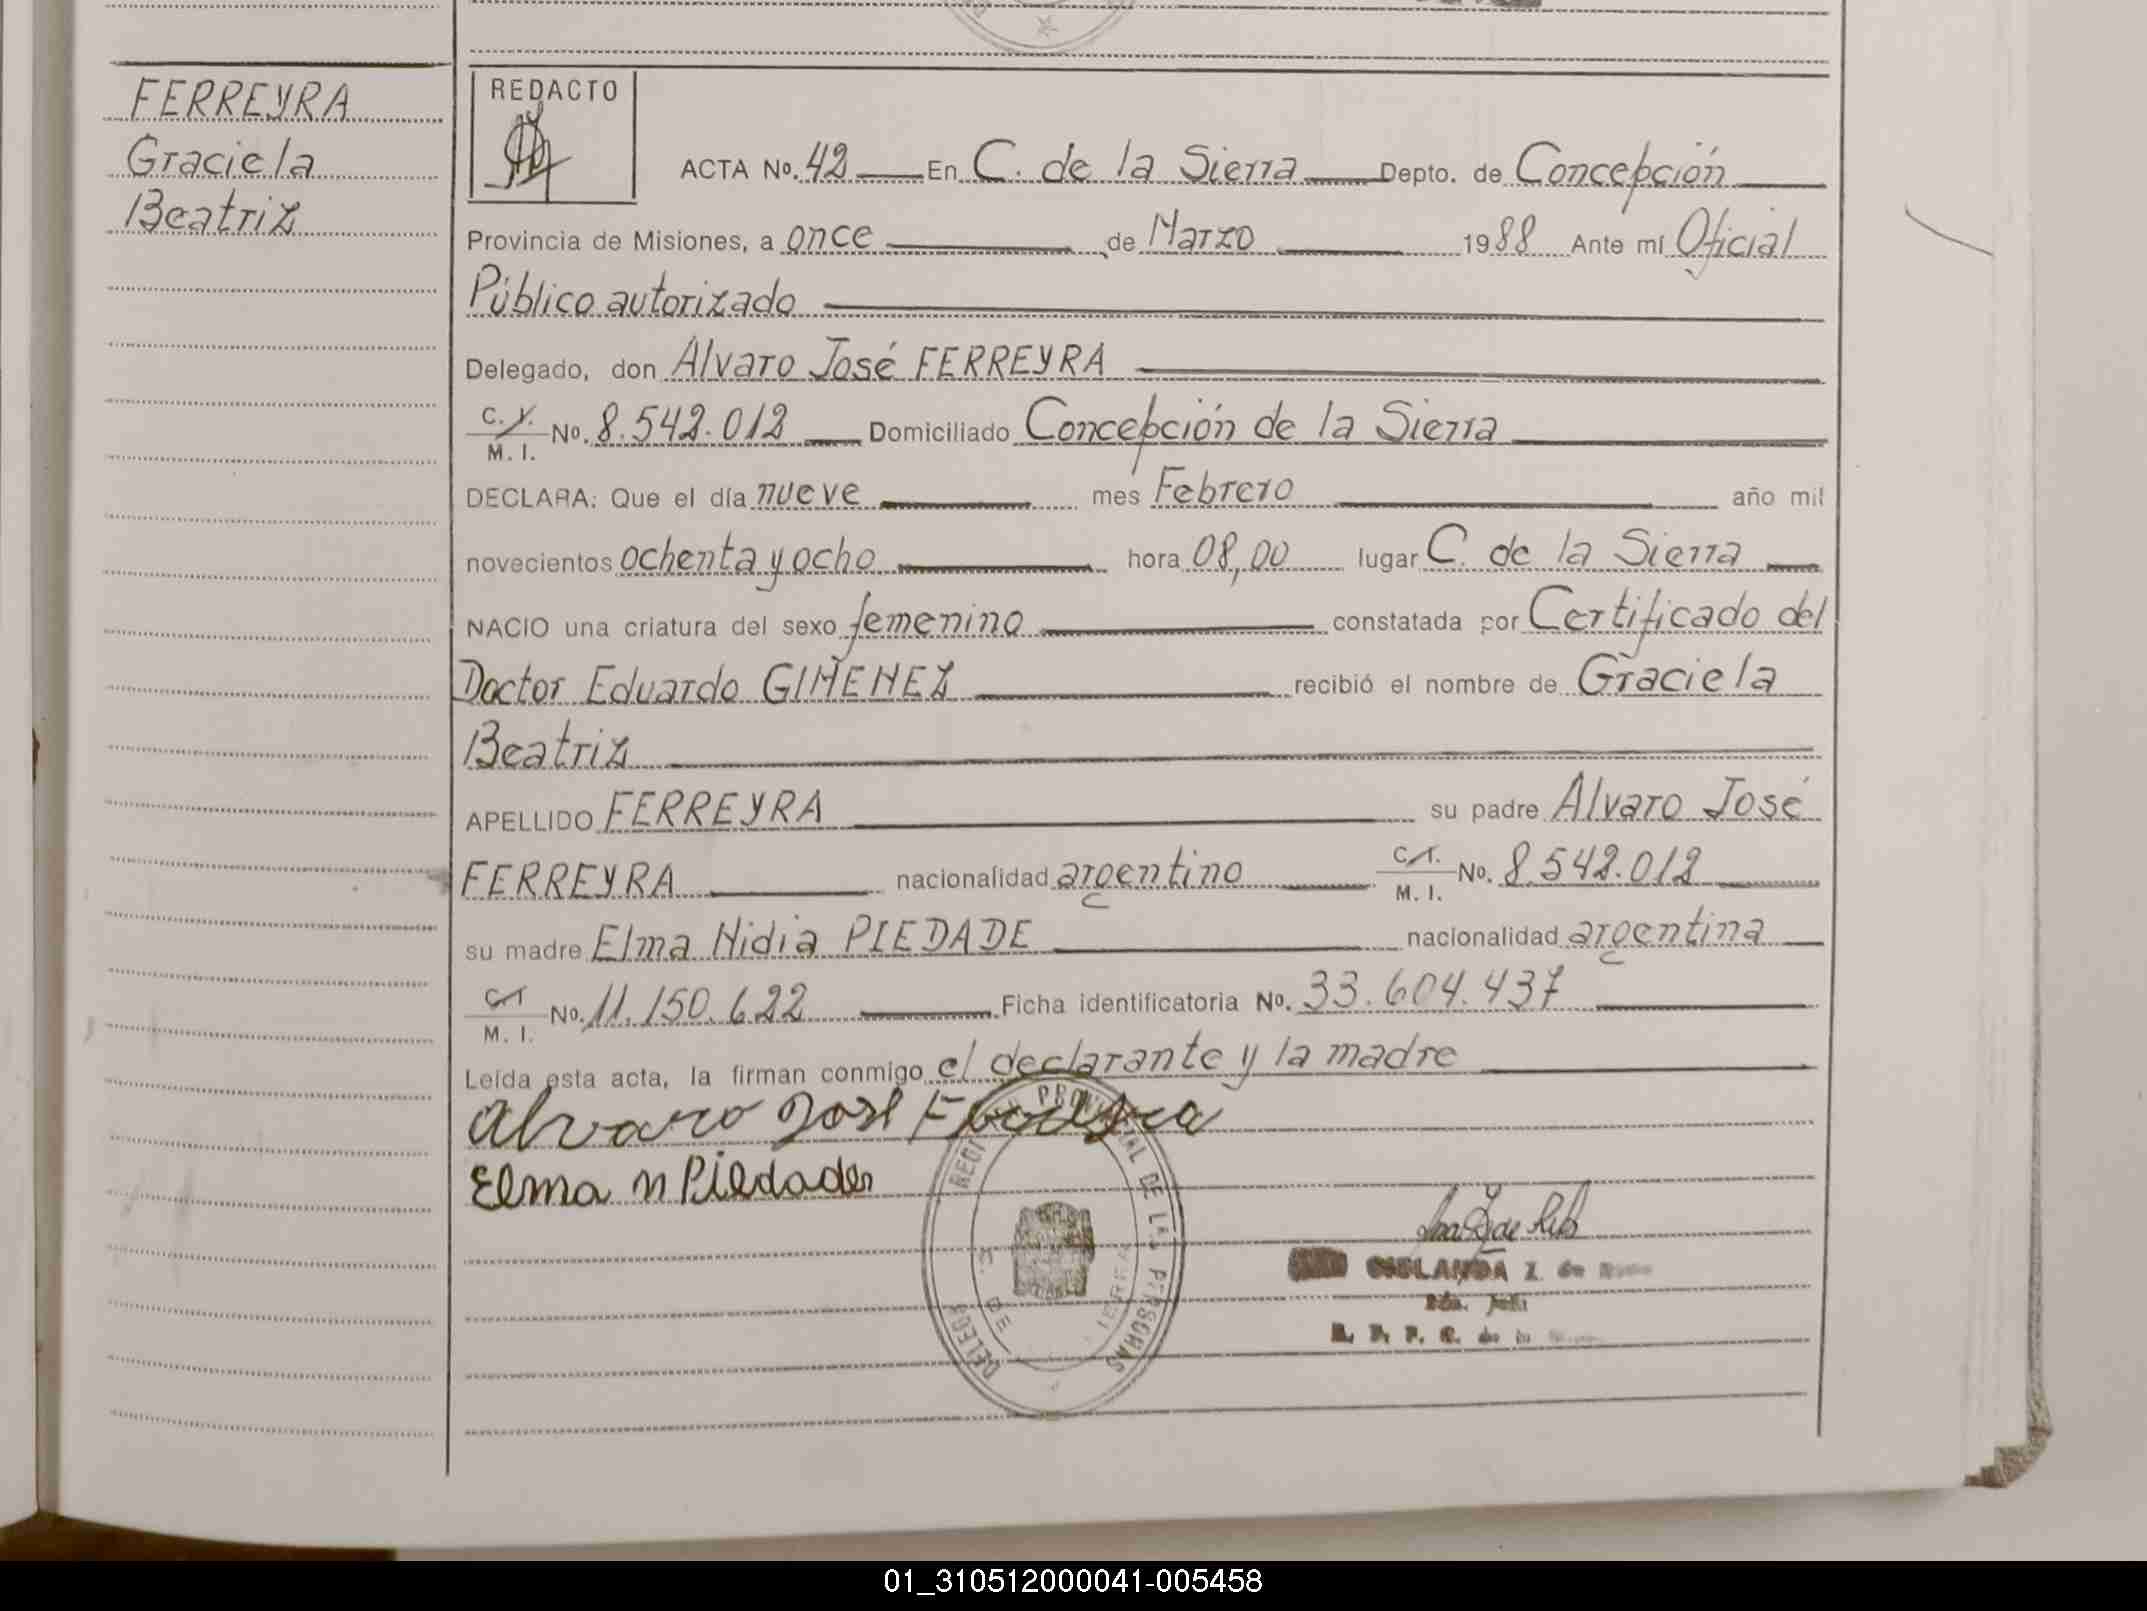 FERREYRA
Graciela
Beatriz
REDACTO
ACTA No. 42 En C. de la Sierra Depto. de Concepción
Provincia de Misiones, a once de Marzo 1988 Ante mí Oficial
Público autorizado
Delegado, don Alvaro José FERREYRA
C. I. M. I. No. 8.542.012 Domiciliado Concepción de la Sierra
DECLARA: Que el día nueve mes Febrero año mil
novecientos ochenta y ocho hora 08,00 lugar C. de la Sierra
NACIO una criatura del sexo femenino constatada por Certificado del
Doctor Eduardo GIMENEZ recibió el nombre de Graciela
Beatriz
APELLIDO FERREYRA su padre Alvaro José
FERREYRA nacionalidad argentino C.I. M. I. No. 8.542.012
su madre Elma Nidia PIEDADE nacionalidad argentina
C.I M. I. No. 11.150.622 Ficha identificatoria No. 33.604.437
Leída esta acta, la firman conmigo el declarante y la madre
Alvaro José Ferreyra
Elma N Piedade
REGI PROVINCIAL DE LAS PERSONAS
DELEGA
C. DE SIERRA
01_310512000041-005458